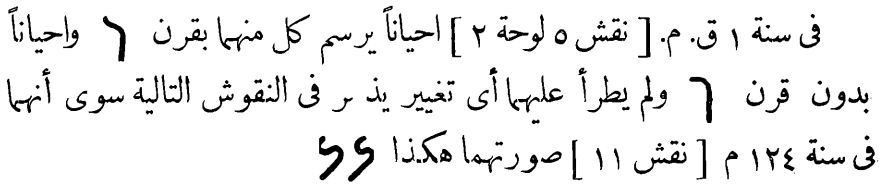 فى سنة ١ ق. م. [ نقش ٥ لوحة ٢ ] احياناً يرسم كل منهما بقرن واحياناً
بدون قرن ولم يطرأ عليهما أى تغيير يذ كر فى النقوش التالية سوى أنهما
فى سنة ١٢٤ م [ نقش ١١ ] صورتهما هكذا